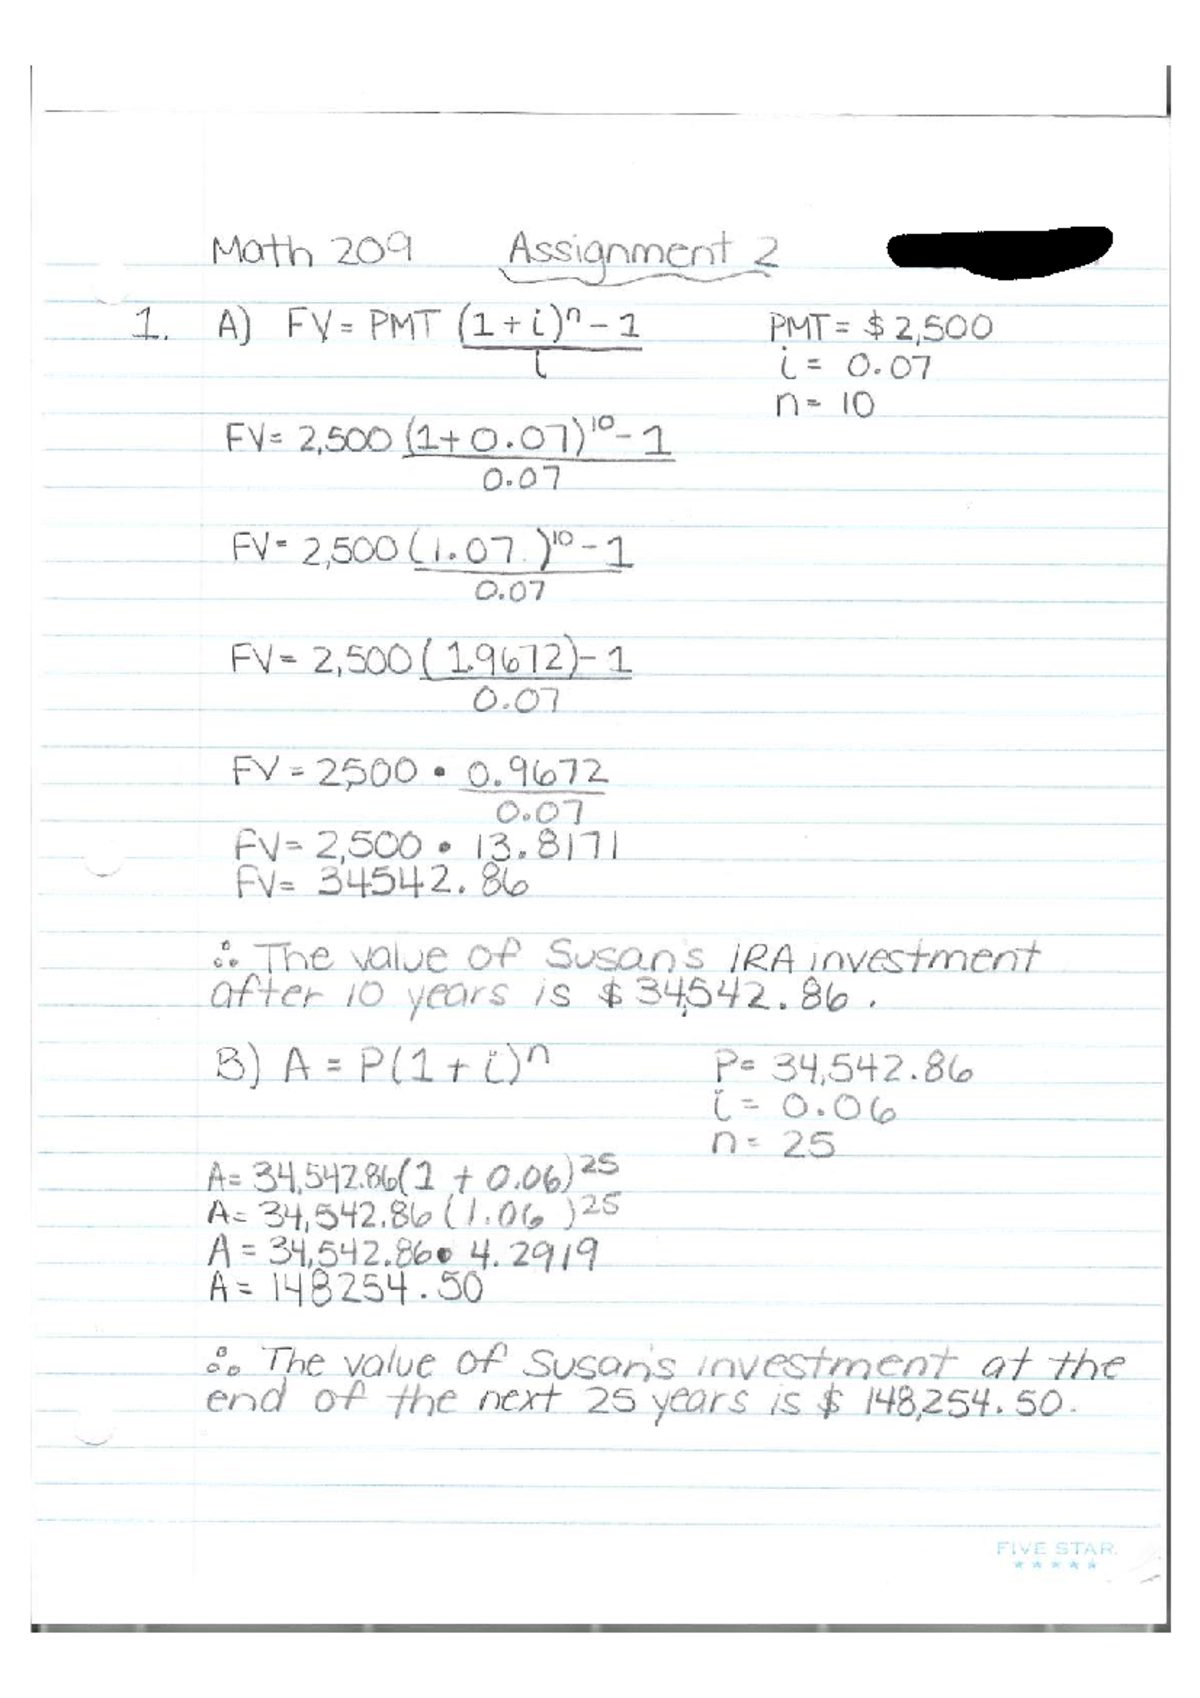 Math 209 Assignment 2
1. A) FV = PMT (1 + i)ⁿ - 1 PMT = $2,500
i i = 0.07
n = 10
FV = 2,500 (1 + 0.07)¹⁰ - 1
0.07
FV = 2,500 (1.07)¹⁰ - 1
0.07
FV = 2,500 (1.9672) - 1
0.07
FV = 2,500 • 0.9672
0.07
FV = 2,500 • 13.8171
FV = 34542.86
∴ The value of Susan's IRA investment
after 10 years is $34,542.86.
B) A = P(1 + i)ⁿ P = 34,542.86
i = 0.06
n = 25
A = 34,542.86(1 + 0.06)²⁵
A = 34,542.86(1.06)²⁵
A = 34,542.86 • 4.2919
A = 148254.50
∴ The value of Susan's investment at the
end of the next 25 years is $148,254.50.
FIVE STAR.
★★★★★